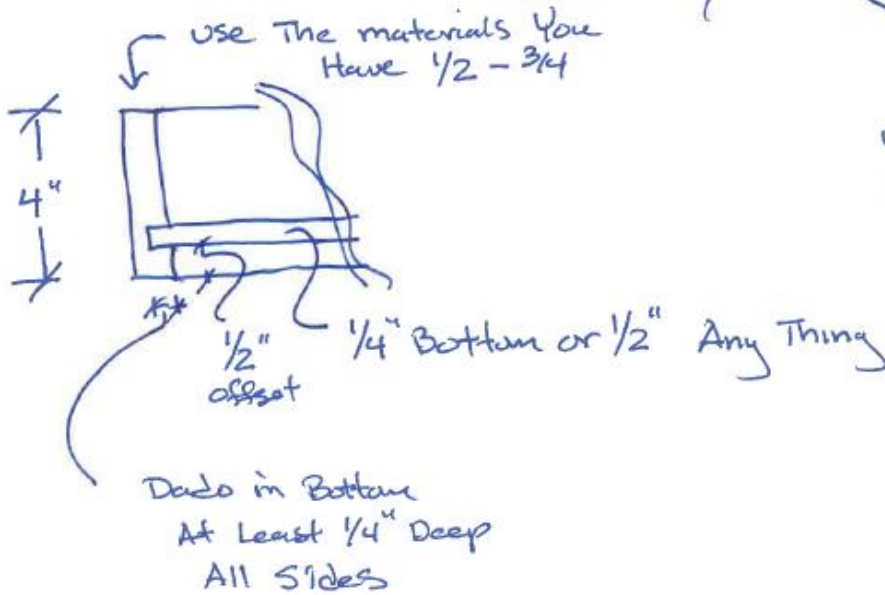 use The materials You
Have 1/2 - 3/4
4"
1/2"
offset
1/4" Bottom or 1/2" Any Thing
Dado in Bottom
At Least 1/4" Deep
All Sides